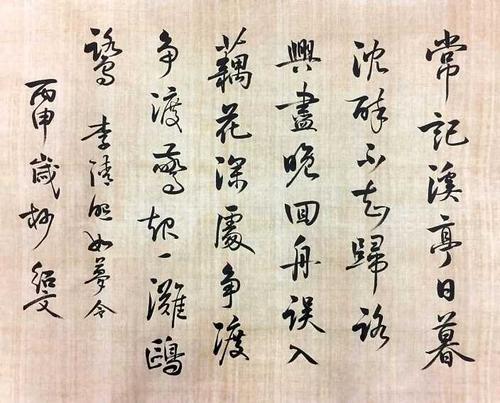 常記溪亭日暮
沈醉不知歸路
興盡晚回舟誤入
藕花深處争渡
争渡驚起一灘鷗
鷺 李清照如夢令
丙申歲杪 紹文